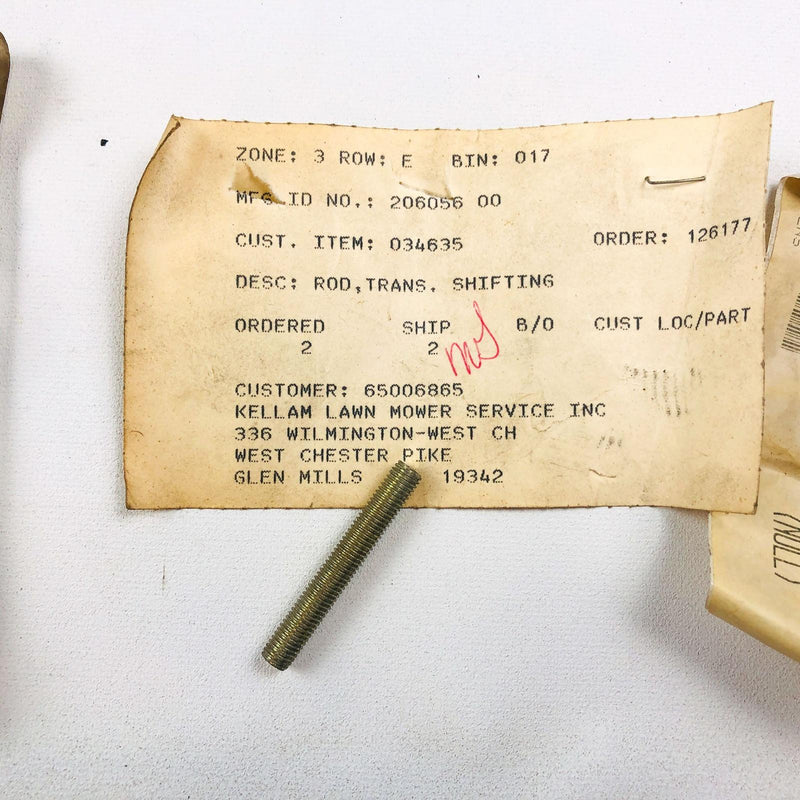 ZONE: 3 ROW: E BIN: 017
MFG ID NO.: 206056 00
CUST. ITEM: 034635 ORDER: 126177
DESC: ROD,TRANS. SHIFTING
ORDERED SHIP B/O CUST LOC/PART
2 2
CUSTOMER: 65006865
KELLAM LAWN MOWER SERVICE INC
336 WILMINGTON-WEST CH
WEST CHESTER PIKE
GLEN MILLS 19342
(NULL)